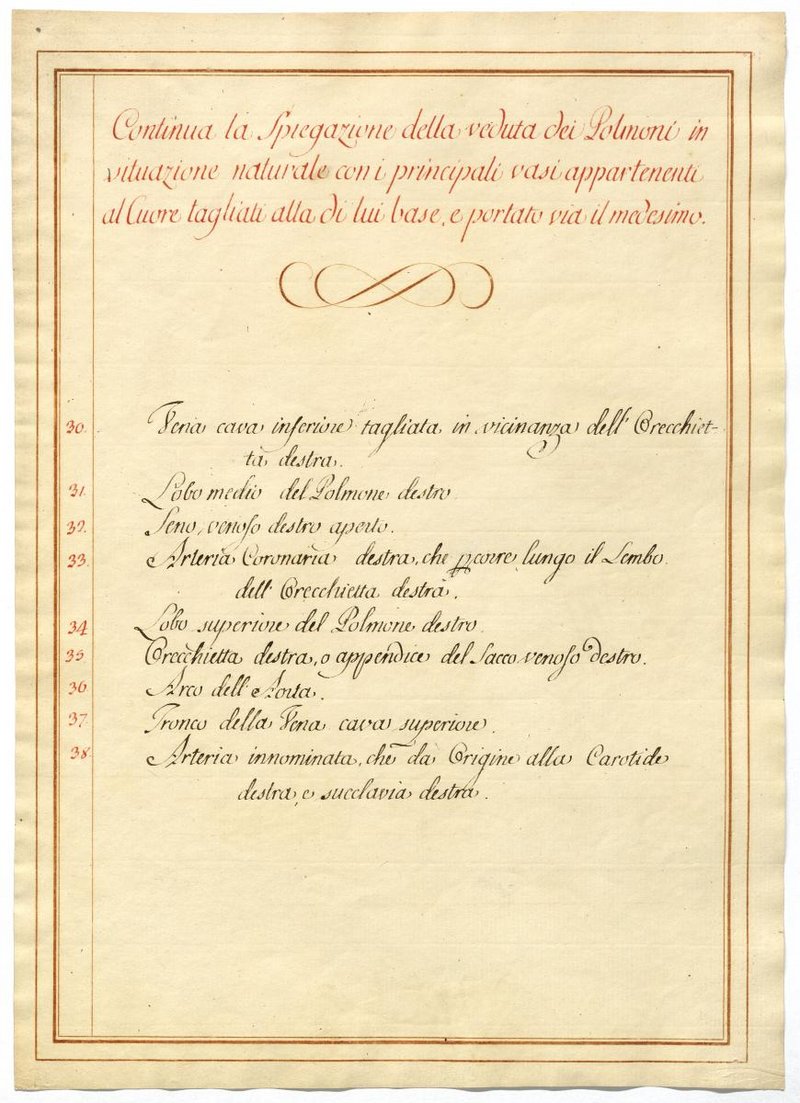 Continua la Spiegazione della veduta dei Polmoni in
situazione naturale con i principali vasi appartenenti
al Cuore tagliati alla di lui base, e portato via il medesimo.
30. Vena cava inferiore tagliata in vicinanza dell' Orecchiet-
ta destra.
31. Lobo medio del Polmone destro.
32. Seno venoso destro aperto.
33. Arteria Coronaria destra, che pcorre lungo il Lembo
dell' Orecchietta destra.
34 Lobo superiore del Polmone destro.
35 Orecchietta destra, o appendice del Sacco venoso destro.
36 Arco dell' Aorta.
37. Tronco della Vena cava superiore.
38. Arteria innominata, che da Origine alla Carotide
destra, e succlavia destra.